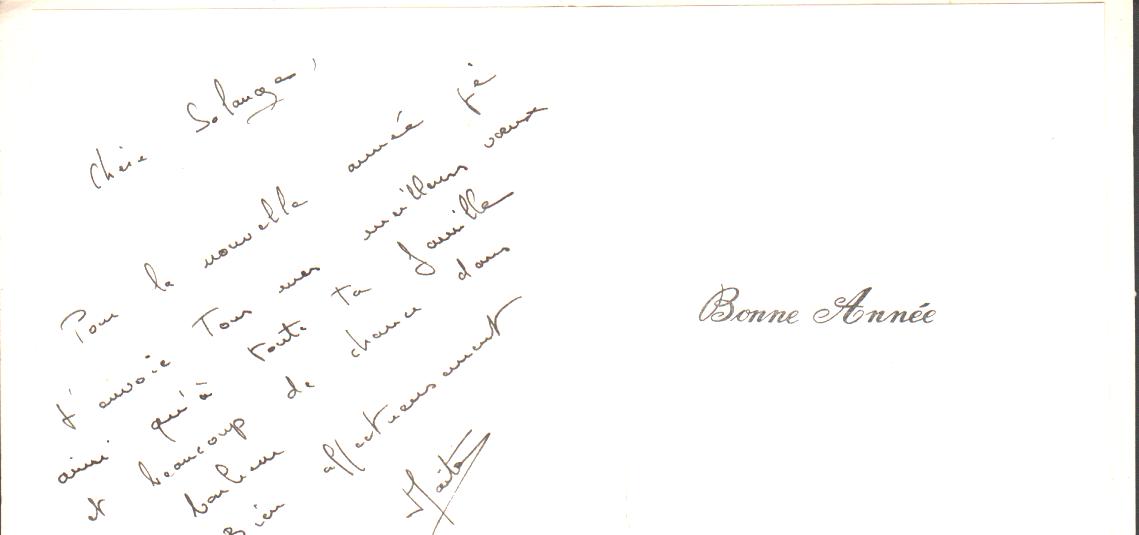 Chère Solange,
Pour la nouvelle année je
t'envoie Tous mes meilleurs vœux
ainsi qu'à toute ta famille
et beaucoup de chance dans
bonheur
Bien affectueusement
Bonne Année